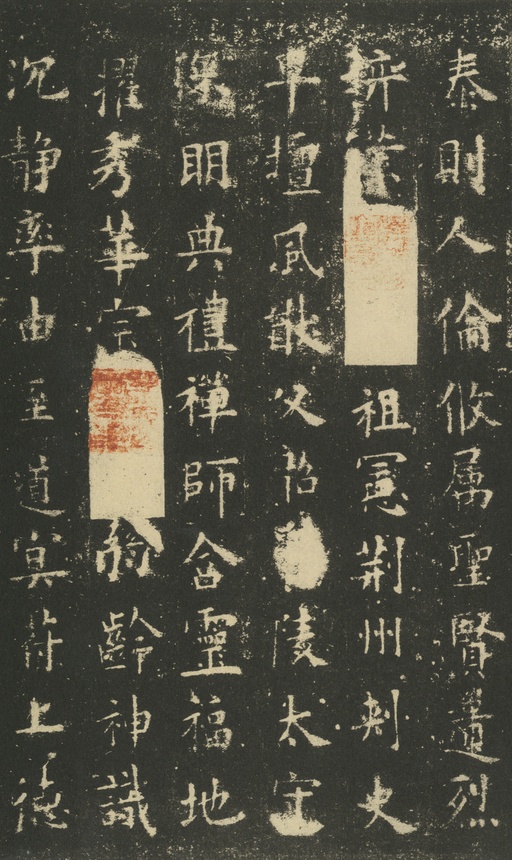 泰則人倫攸属聖賢遺烈
弈葉祖憲荆州刺史
早擅風猷父韶陵太守
深明典禮禪師含靈福地
擢秀華宗齡神識
沉静率由至道冥符上德